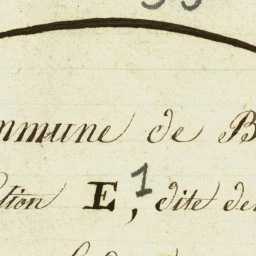 mmune de B
ction E, 1 dite de